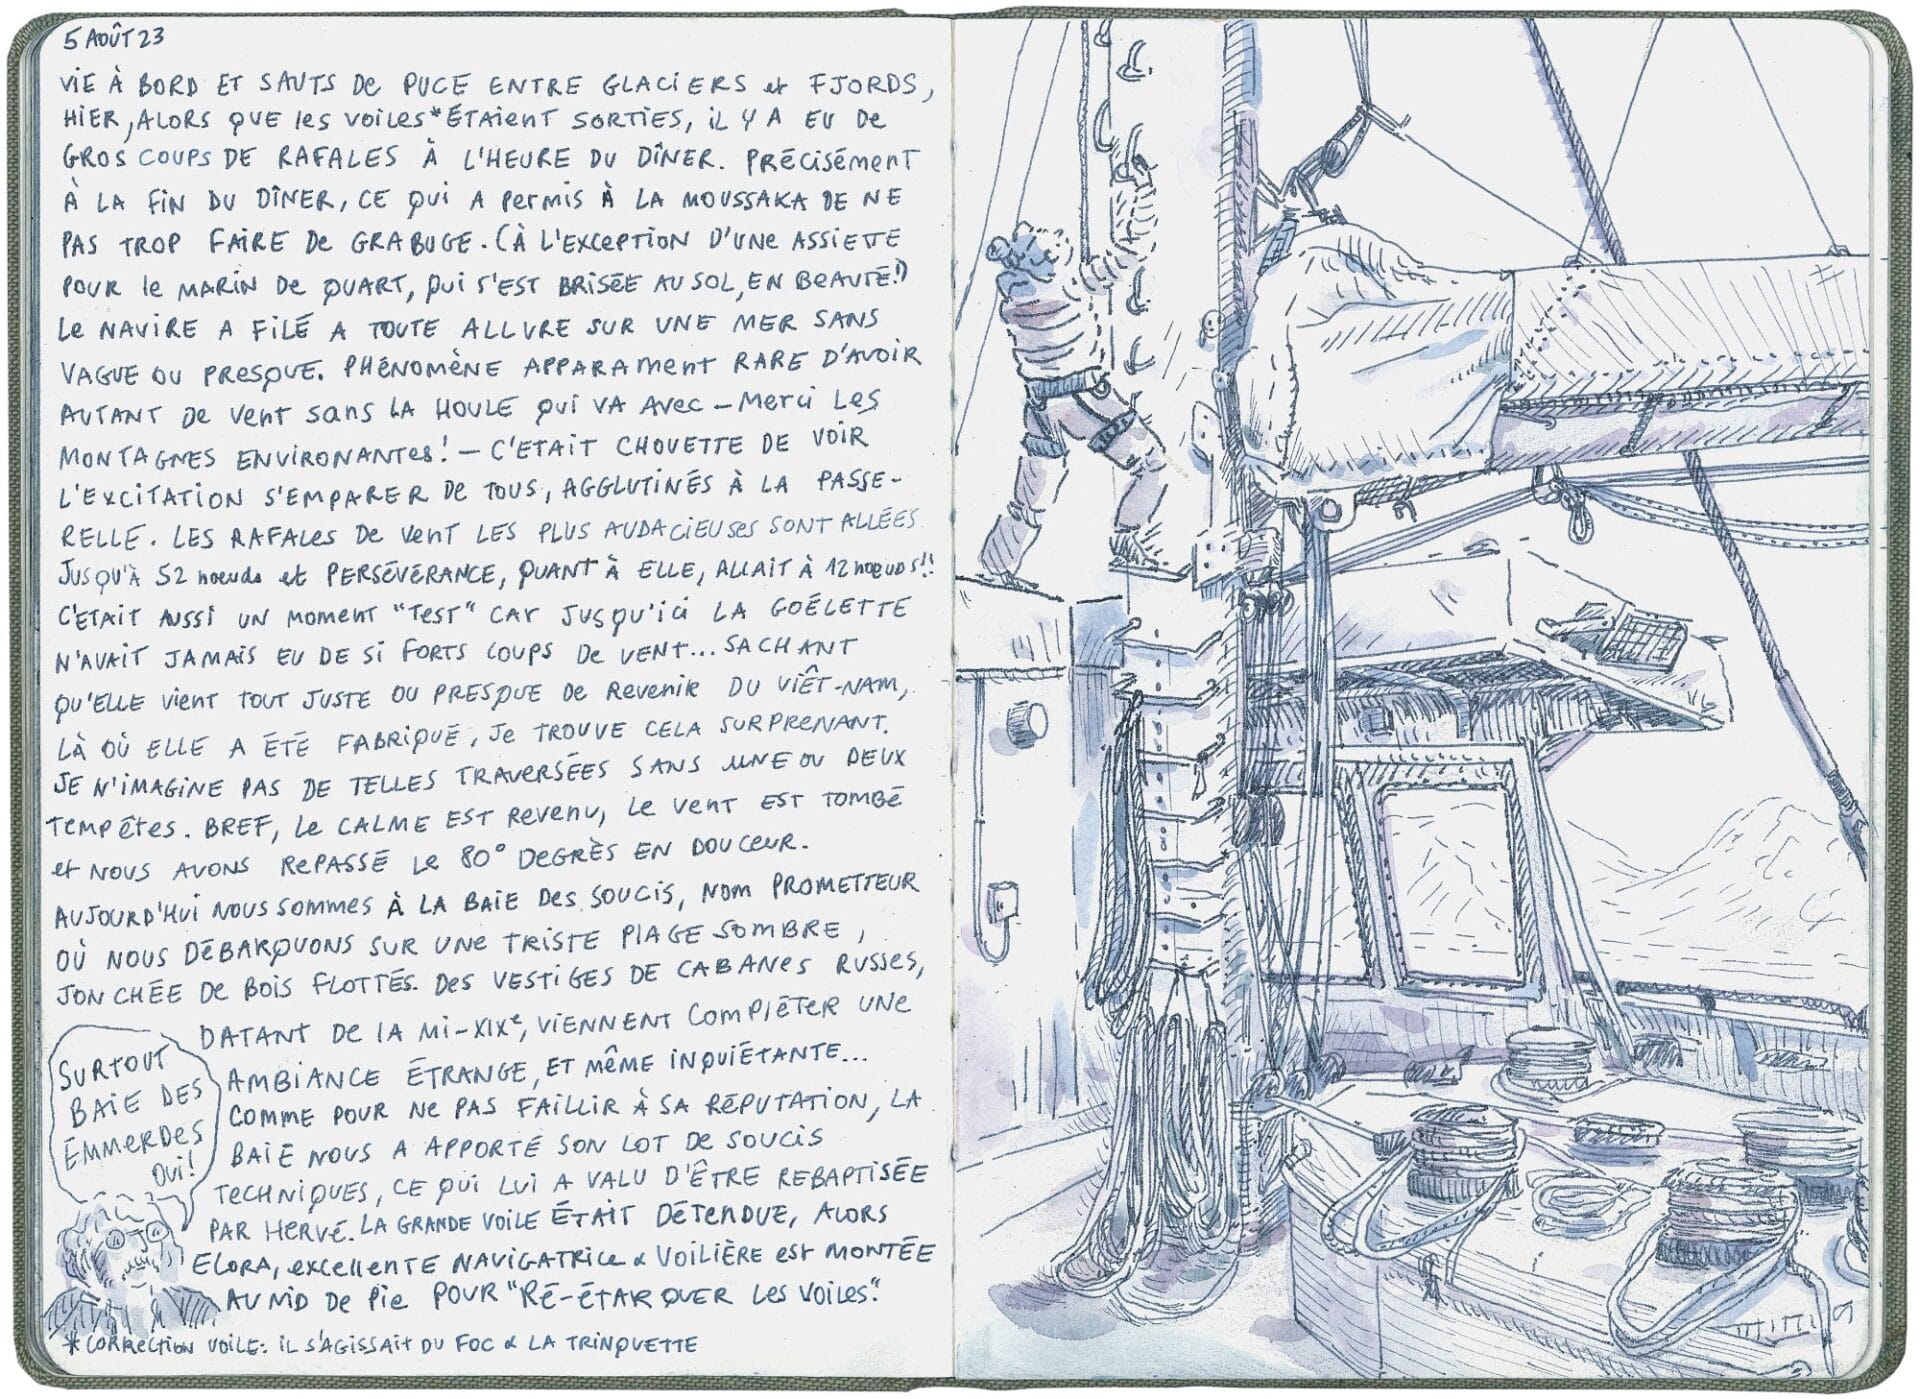 5 AOÛT 23
VIE À BORD ET SAUTS DE PUCE ENTRE GLACIERS et FJORDS,
HIER, ALORS QUE les voiles* ÉTAIENT SORTIES, IL Y A EU De
GROS COUPS DE RAFALES À L'HEURE DU DÎNER. PRÉCISÉMENT
À LA FIN DU DÎNER, CE QUI A PERMIS À LA MOUSSAKA DE NE
PAS TROP FAIRE DE GRABUGE. (À L'EXCEPTION D'UNE ASSIETTE
POUR le MARIN DE QUART, QUI S'EST BRISÉE AU SOL, EN BEAUTÉ!)
Le NAVIRE A FILÉ A TOUTE ALLURE SUR UNE MER SANS
VAGUE OU PRESQUE. PHÉNOMÈNE APPARAMENT RARE D'AVOIR
AUTANT DE VENT SANS LA HOULE QUI VA AVEC – MERCI LES
MONTAGNES ENVIRONANTES! – C'ETAIT CHOUETTE DE VOIR
L'EXCITATION S'EMPARER DE TOUS, AGGLUTINÉS À LA PASSE-
RELLE. LES RAFALES DE VENT LES PLUS AUDACIEUSES SONT ALLÉES
JUSQU'À 52 noeuds et PERSÉVÉRANCE, QUANT À ELLE, ALLAIT À 12 NOEUDS!!
C'ETAIT AUSSI UN MOMENT "TEST" CAR JUSQU'ICI LA GOÉLETTE
N'AVAIT JAMAIS EU DE SI FORTS COUPS DE VENT... SACHANT
QU'ELLE VIENT TOUT JUSTE OU PRESQUE DE REVENIR DU VIÊT-NAM,
LÀ OÙ ELLE A ÉTÉ FABRIQUÉ, JE TROUVE CELA SURPRENANT.
JE N'IMAGINE PAS DE TELLES TRAVERSÉES SANS UNE OU DEUX
TEMPÊTES. BREF, LE CALME EST REVENU, LE VENT EST TOMBÉ
et NOUS AVONS REPASSÉ LE 80° DEGRÈS EN DOUCEUR.
AUJOURD'HUI NOUS SOMMES À LA BAIE DES SOUCIS, NOM PROMETTEUR
OÙ NOUS DÉBARQUONS SUR UNE TRISTE PLAGE SOMBRE,
JONCHÉE DE BOIS FLOTTÉS. DES VESTIGES DE CABANES RUSSES,
DATANT DE LA MI-XIXe, VIENNENT COMPLÉTER UNE
AMBIANCE ÉTRANGE, ET MÊME INQUIÉTANTE...
COMME POUR NE PAS FAILLIR À SA RÉPUTATION, LA
BAIE NOUS A APPORTÉ SON LOT DE SOUCIS
TECHNIQUES, CE QUI LUI A VALU D'ÊTRE REBAPTISÉE
PAR HERVÉ. LA GRANDE VOILE ÉTAIT DÉTENDUE, ALORS
ELORA, EXCELLENTE NAVIGATRICE & VOILIÈRE EST MONTÉE
AU NID DE PIE POUR "RÉ-ÉTARQUER LES VOILES".
SURTOUT
BAIE DES
EMMERDES
OUI!
*CORRECTION VOILE: IL S'AGISSAIT DU FOC & LA TRINQUETTE